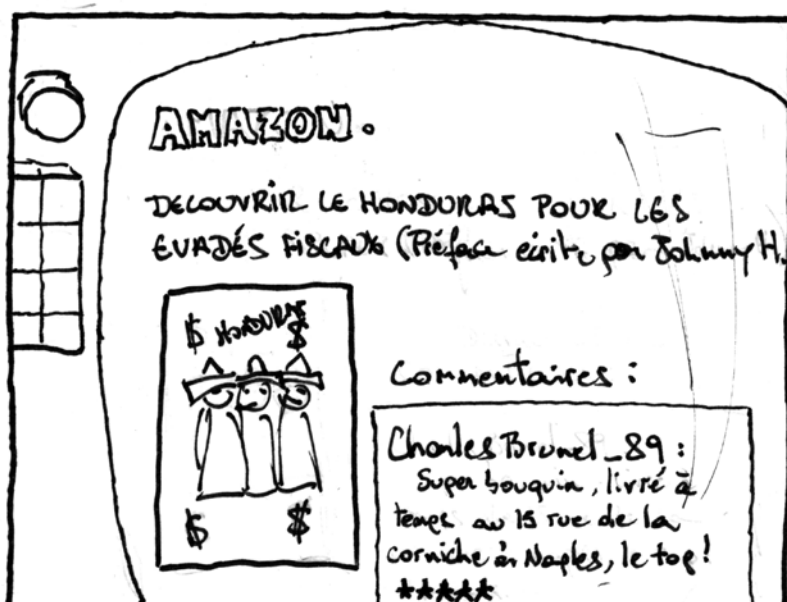 AMAZON.
DECOUVRIR LE HONDURAS POUR LES
EVADÉS FISCAUX (Préface écrite par Johnny H.
$ HONDURAS $
$ $
Commentaires :
Charles Brunel_89 :
Super bouquin, livré à
temps au 15 rue de la
corniche à Naples, le top !
★★★★★